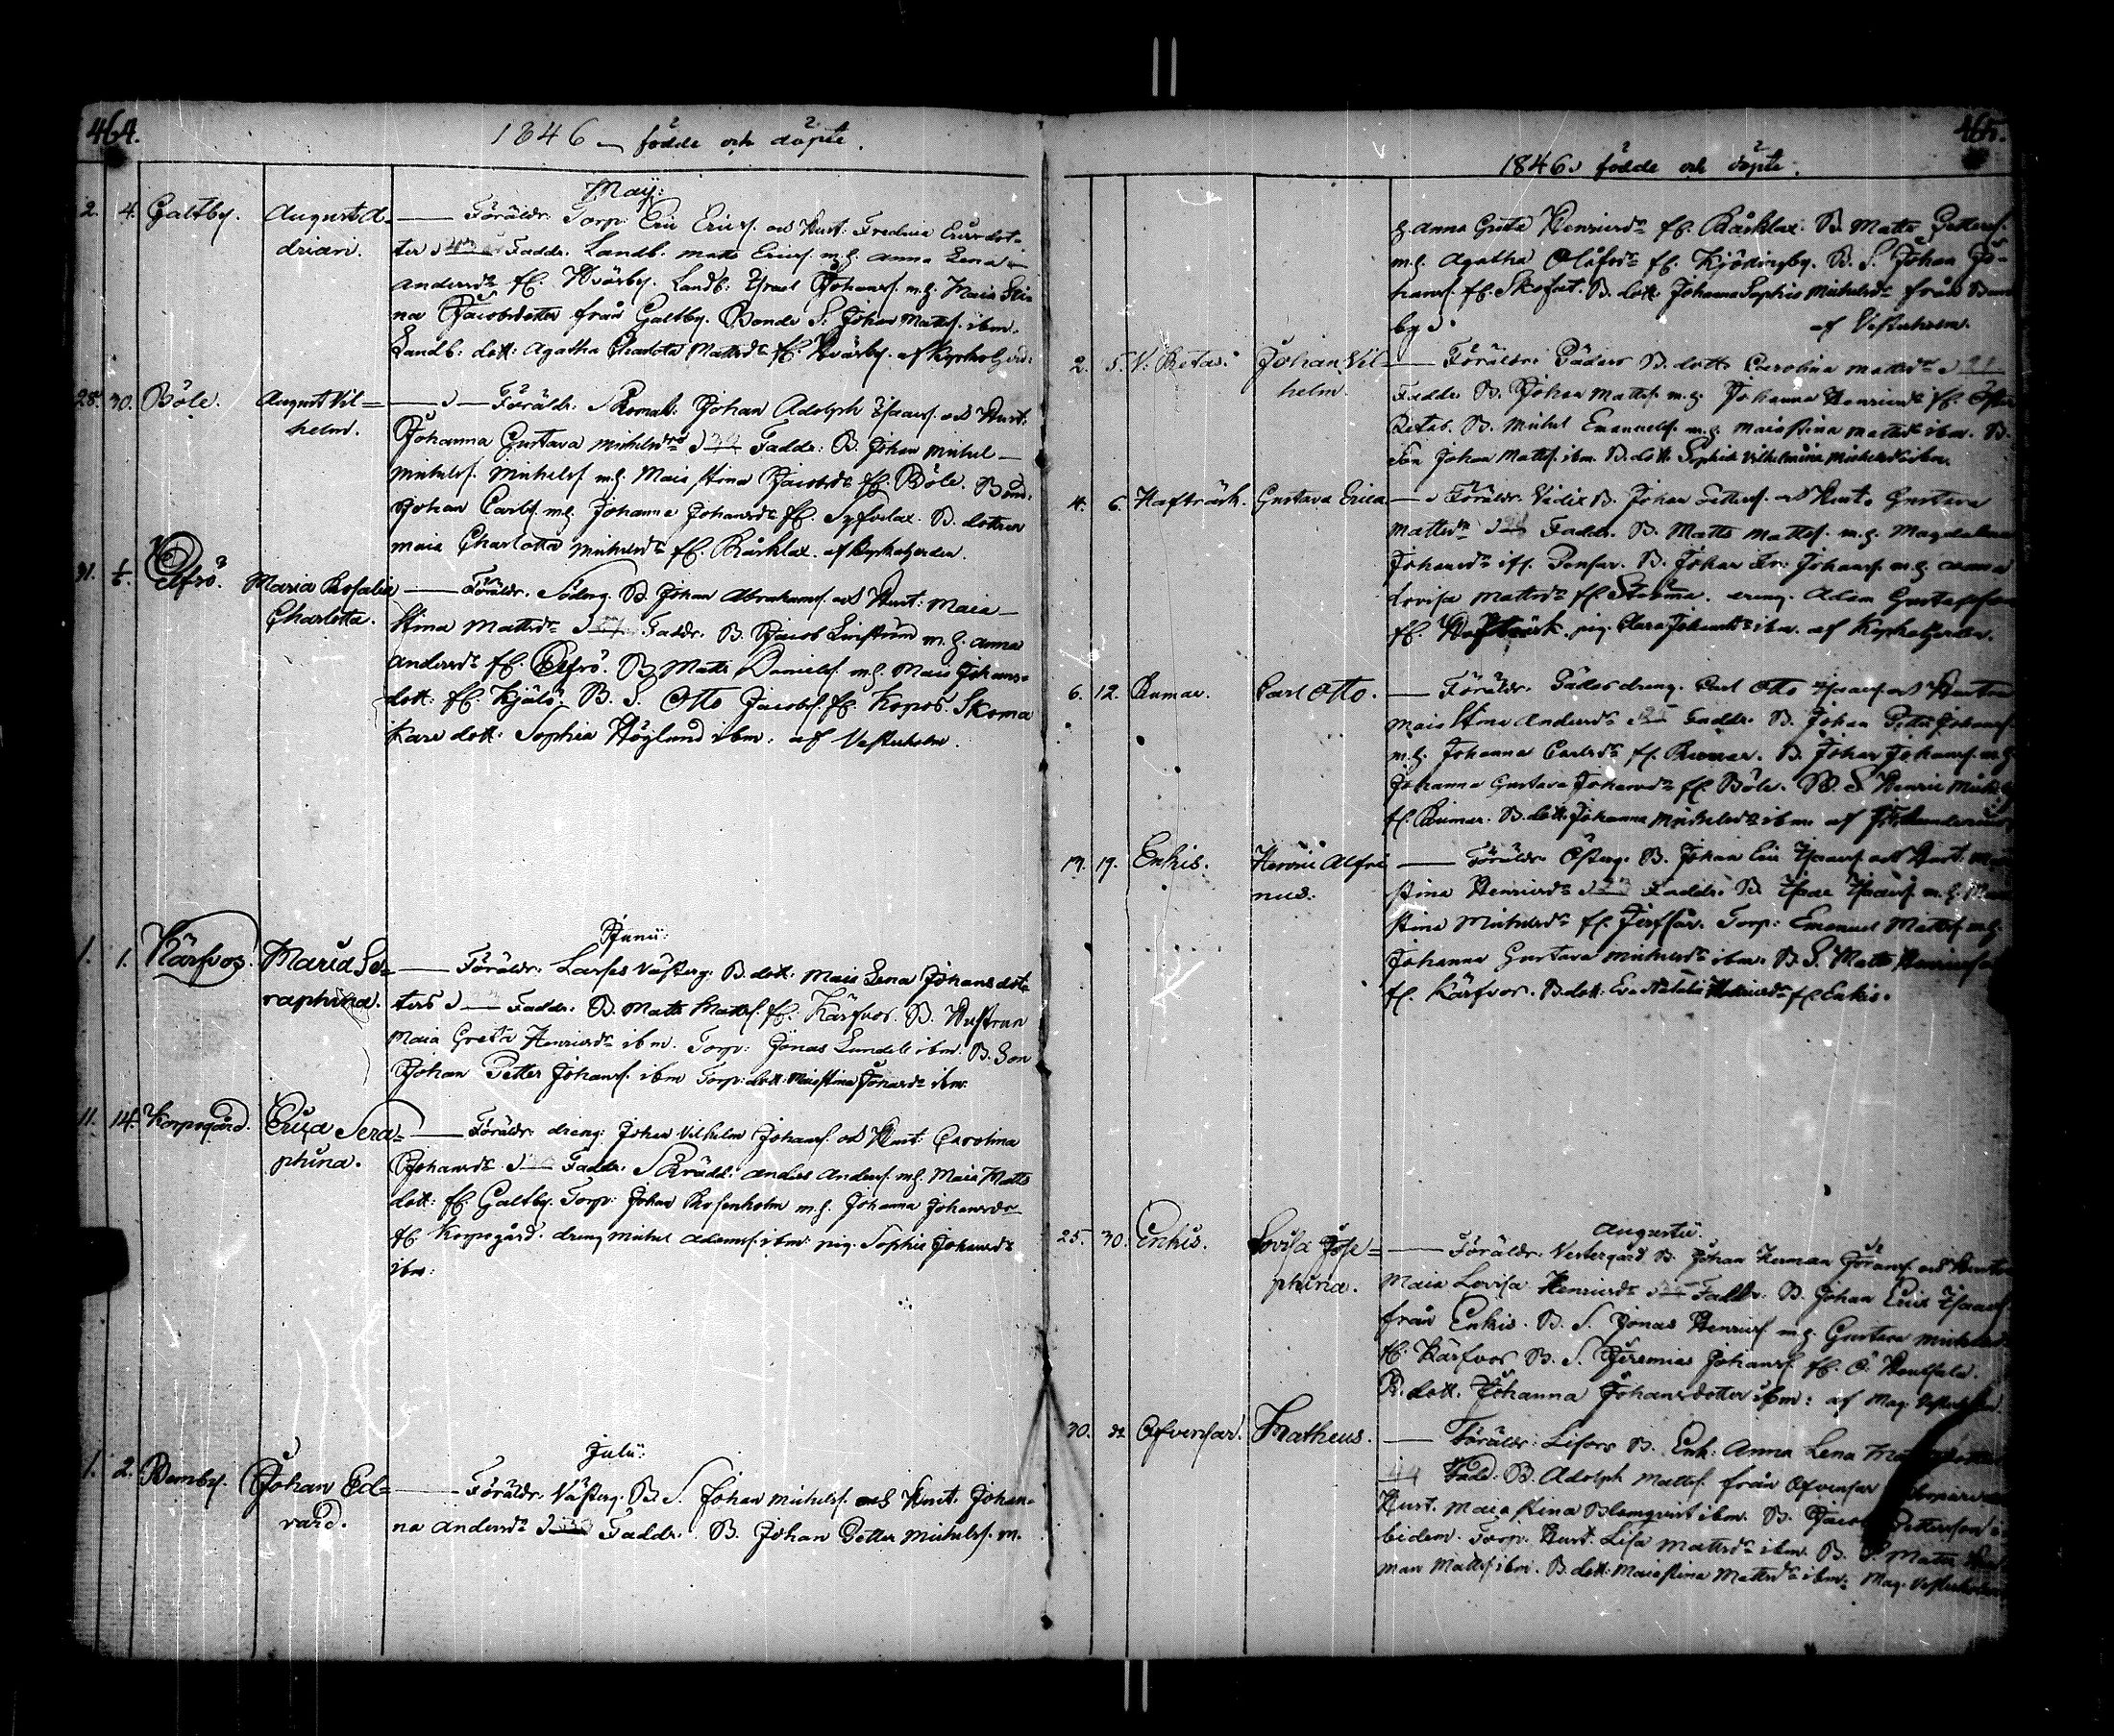 464.
1846 födde och döpte.
May:
2. 4. Galtby. August A= Föräldr. Torp: Eric Erics. och Hust: Fredrica Ericsdot=
drian. ters Faddr. Landb. Matts Erics. m.h. Anna Lena
Andersdr fr. Hvarby. Landb: Israel Johans. m.h. Maia Sti=
na Jacobsdotter från Galtby. Bonde S. Johan Matts. ibm.
Landb: dott: Agatha Charlota Mattsdr fr. Hvarby.
28. 30. Böle. August Vil= Föräldr. Johan Adolph Isaacs. och Hust:
helm. Johanna Gustava Michelsdrs Faddr: B. Johan Michel
Michels. Michels. m.h. Maia Stina Jacobsdr fr. Böle. Bond:
Johan Carls. m.h. Johanna Johansdr fr. Syfvelax. B. dottren
Maia Charlotta Michelsdr fr. Båsklax. af Kyrkoherden.
31. 1/6. Elfsö. Maria Rosalia Föräldr. Söderg. B. Johan Abrahams. och Hust: Maia
Charlotta. Stina Mattsdr Faddr. B. Jacob m.h. Anna
Andersdr fr. Elfsö. B. Matts Daniels. m.h. Maia Johans=
dott: fr. Kjälö. B. S. Otto Jacobs. fr. Kopos. Skoma
kare dott: Sophia Höglund ibm: af Vesterholm.
Junii:
1. 1. Kärfvos. Maria Se= Föräldr. Larsas Västerg: B. dott: Maia Lena Johansdot=
raphina. ters Faddr. B. Matts Matts. fr. Kärfvos. B. Hustrun
Maia Greta Henricsdr ibm. Torp: Jonas Lundell ibm. B. Son
Johan Petter Johans. ibm Torp: dott: Maja Stina Johansdr ibm.
11. 14. Korpogård. Erica Sera= Föräldr. dreng: Johan Vilhelm Johans. och Hust: Carolina
phina. Johansdr Faddr. Skrädd. Anders Anders. m.h. Maia Matts
dott: fr. Galtby. Torp: Johan Rosenholm m.h. Johanna Johansdr
fr. Korpogård. dreng Michel Adams. ibm: pig. Sophia Johansdr
ibm:
Julii:
1. 2. Benby. Johan Ed= Föräldr. Västerg. B. S. Johan Michels. och Hust. Johan=
vard. na Andersdr Faddr. B. Johan Petter Michels. m.
465.
1846 födde och döpte.
h. Anna Greta Henricsdr fr. Båsklax. B. Matts Petters.
m.h. Agatha Olofsdr fr. Kjödingby. B. S. Johan Jo=
hans. fr. Skofat. B. dott. Johanna Sophia Michelsdr från Ben
by. af Vesterholm.
2. 5. V. Retais. Johan Vil= Föräldr. B. dott. Carolina Mattsdrs 21
helm. Faddr. B. Johan Matts. m.h. Johanna Henricsdr fr. Öster
Retais. B. Michel Emanuels. m.h. Maia Stina Mattsdr ibm. B.
Son Johan Matts. ibm. B. dott. Sophia Vilhelmina Michelsdr ibm.
4. 6. Hafträsk. Gustava Erica Föräldr. B. Johan Petters. och Hust. Gustava
Mattsdr Faddr. B. Matts Matts. m.h. Magdalena
Johansdr fr. Pensar. B. Johan Er. Johans. m.h. Anna
Lovisa Mattsdr fr. dreng. Adam Gustafsson
fr. Hafträsk. pig. Clara Johansdr ibm. af Kyrkoherden.
6. 12. Rumar. Carl Otto. Föräldr. dreng. Carl Otto Isaacs. och Hustru
Maia Stina Andersdr Faddr. B. Johan Petter Johans.
m.h. Johanna Carlsdr fr. Rumar. B. Johan Johans. m.h.
Johanna Gustava Johansdr fr. Böle. B. S. Henric Michels.
fr. Rumar. B. dott. Johanna Michelsdr ibm. af
13. 19. Enkis. Henric Alfri Föräldr. Österg. B. Johan Eric Isaacs. och Hust. Maja
nus. Stina Henricsdr Faddr. B. Isac Isacs. m.h. Maia
Stina Michelsdr fr. Torp: Emanuel Matts. m.h.
Johanna Gustava Michelsdr ibm. B. S. Matts Henricsson
fr. Kärfvos. B. dott: Eva Natalia Henricsdr fr. Enkis.
Augustii.
25. 30. Enkis. Lovisa Jose= Föräldr. Vestergård B. Johan Herman Johans. och Hustru
phina. Maia Lovisa Henricsdr Faddr. B. Johan Eric Isaacs.
från Enkis. B. S. Jonas Henrics. m.h. Gustava Michelsdr
fr. Kärfvos B. S. Jeremias Johans. fr. Ö.
B. dott. Johanna Johansdotter ibm: af Mag. Vesterholm.
30. dr Ofvensar. Matheus. Föräldr. B. Enk: Anna Lena
44 Fadd. B. Adolph Matts. från Ofvensar
Hust. Maia Stina Blomqvist ibm. B. Jacob Pettersson i=
bidem. Torp. Hust. Lisa Mattsdr ibm. B. S. Matts Her
man Matts. ibm. B. dott: Maia Stina Mattsdr ibm: Mag. Vesterholm.